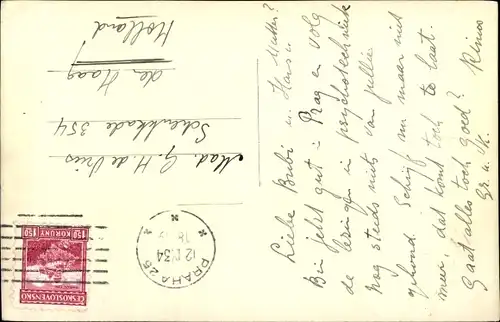 Liebe Bubi en Hans u. Mutter?
Bin jetzt gut in Prag en volg
de lezingen in psychotechniek
Nog steeds niets van jullie
gehoord. Schrijf nu maar niet
meer, dat komt toch te laat.
Gaat alles toch goed?
Gr. u. K.
Mad. G. H. de Vries
Schenkkade 354
den Haag
Holland
PRAHA 25
12.IX.34
ČESKOSLOVENSKO
1·50 KORUNY 1·50